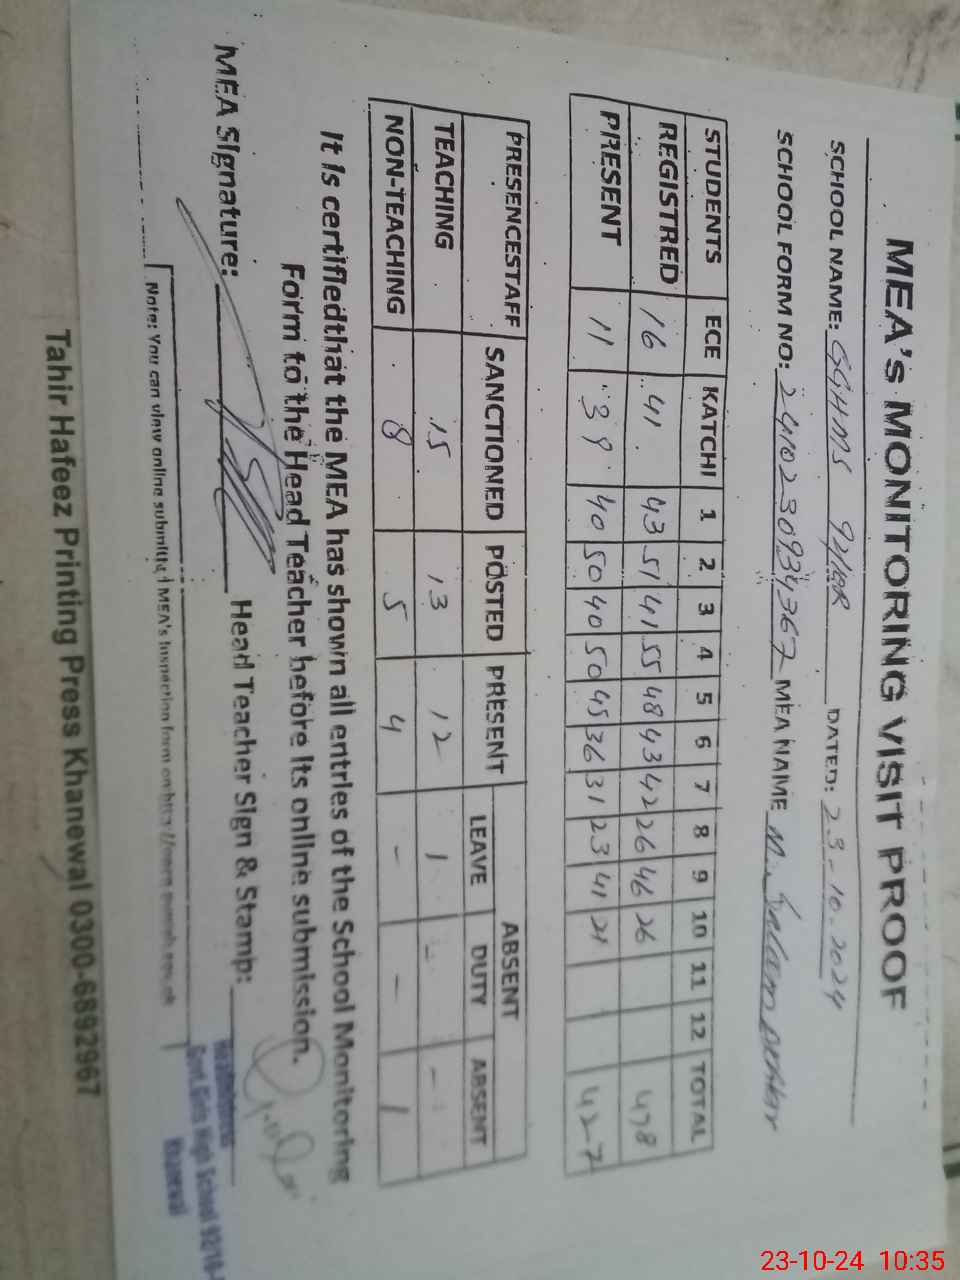 MEA's MONITORING VISIT PROOF
SCHOOL NAME: GGHMS 92/10R DATED: 23-10-2024
SCHOOL FORM NO: 2410230934367 MEA NAME M.
STUDENTS ECE KATCHI 1 2 3 4 5 6 7 8 9 10 11 12 TOTAL
REGISTRED 16 41 43 51 41 55 48 43 42 26 46 26 478
PRESENT 11 39 40 50 40 50 45 36 31 23 41 21 427
PRESENCESTAFF SANCTIONED POSTED PRESENT ABSENT
LEAVE DUTY ABSENT
TEACHING 15 13 12 1 - -
NON-TEACHING 8 5 4 - - 1
It is certifiedthat the MEA has shown all entries of the School Monitoring
Form to the Head Teacher before its online submission.
MEA Signature: Head Teacher Sign & Stamp:
Headmistress
Govt. Girls High School 92/10-
Khanewal
Note: You can view online submitted MEA's Inspection form on
Tahir Hafeez Printing Press Khanewal 0300-6892967
23-10-24 10:35